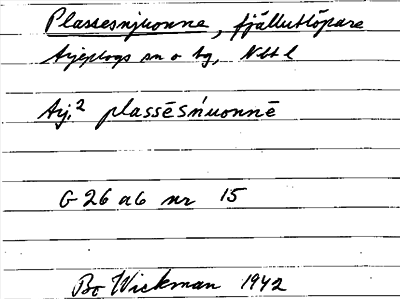 Plassesnjuonne, fjällutlöpare
Arjeplogs sn o tg, Nbt l
Arj.² plassēsńuonnē
G 26 a6 nr 15
Bo Wickman 1942